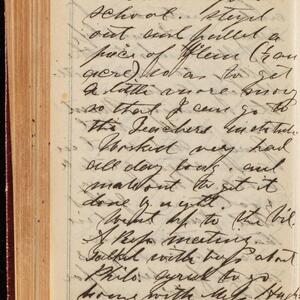 school. Stayed
out and pulled a
piece of Flax
acre) so as to get
a little more money
so that I can go to
the Teachers Institute.
Worked very hard
all day long. and
made out to get it
done
went up to the
meeting.
talked with boys about
to go
home with